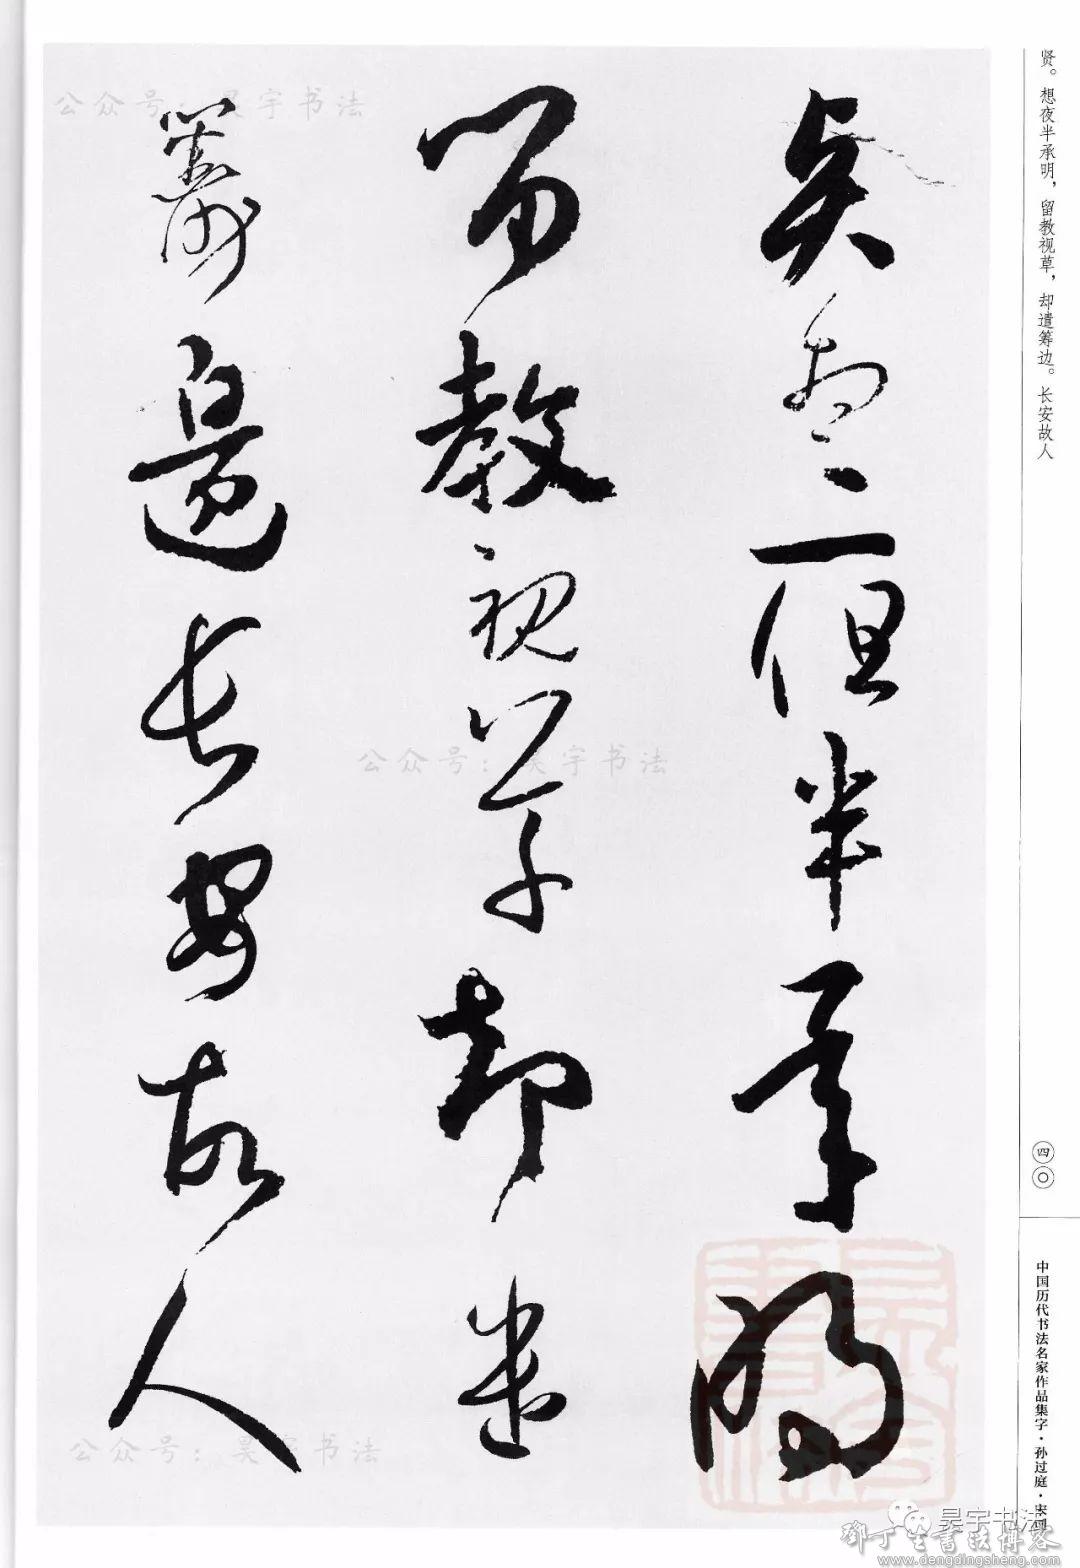 贤。想夜半承明，留教视草，却遣筹边。长安故人
贤想夜半承明
留教视草却遣
筹边长安故人
四〇
中国历代书法名家作品集字·孙过庭·宋词
公众号：昊宇书法
公众号：昊宇书法
公众号：昊宇书法
昊宇书法
邓丁生书法博客
www.dengdingsheng.com